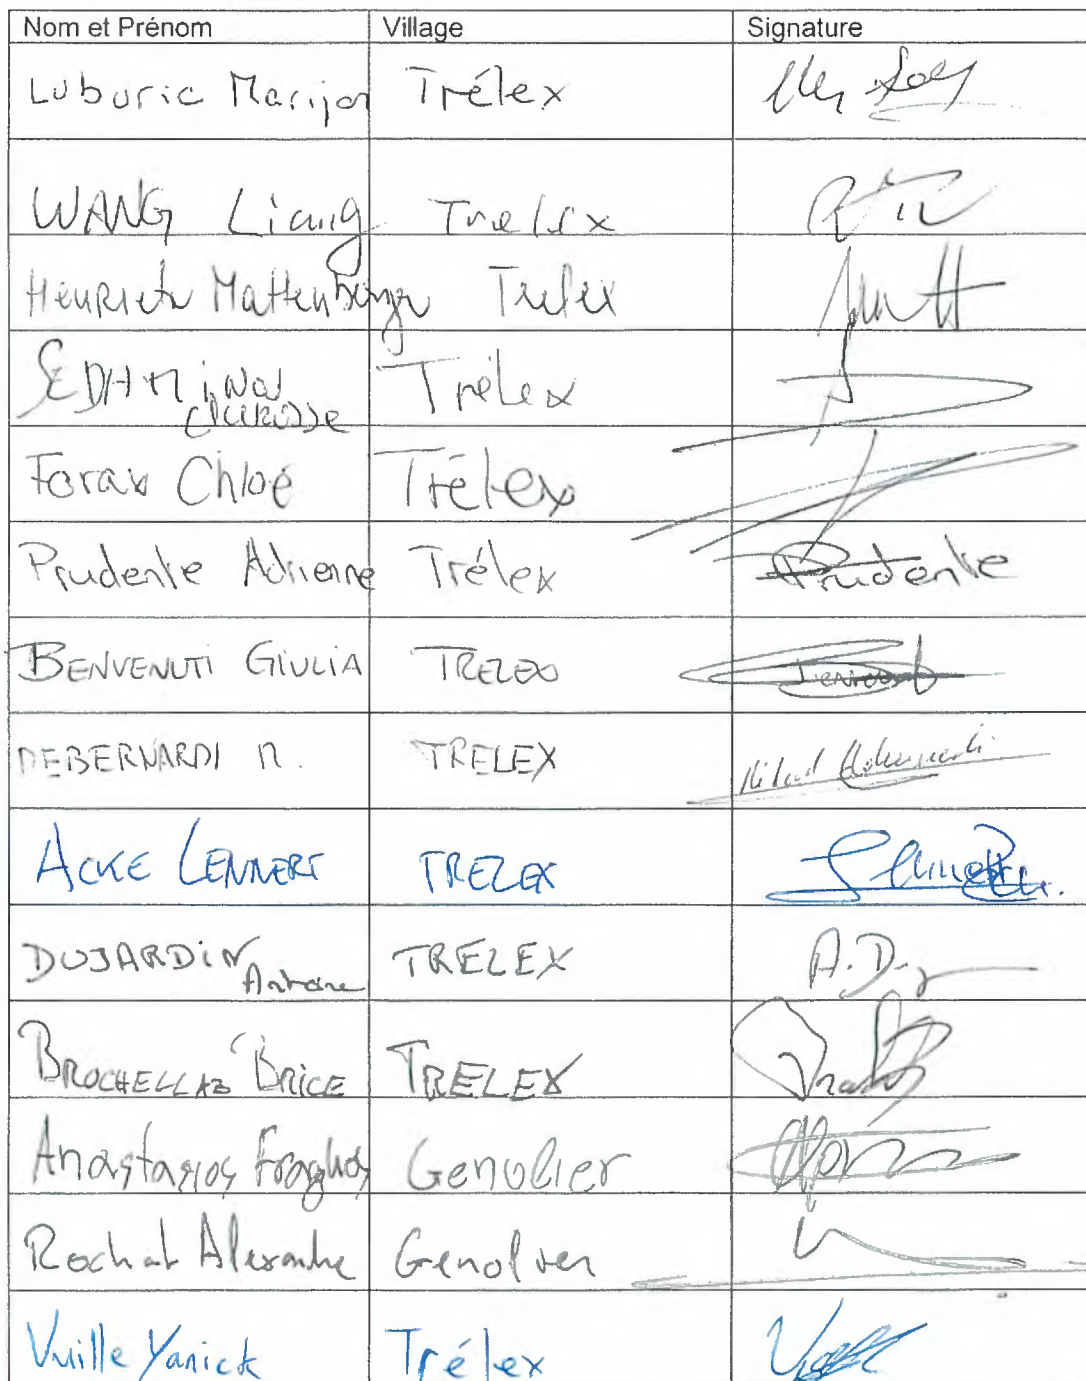 Nom et Prénom Village Signature
Luburic Marijan Trélex
WANG Liang Trelex
Henriett Mattenberger Trelex
Trélex
Chloé Trélex
Prudente Adrienne Trélex Prudente
BENVENUTI GIULIA TRELEX
DEBERNARDI M. TRELEX
ACKE LENNERT TRELEX
DUJARDIN Antoine TRELEX A.D.
BROCHELLAZ BRICE TRELEX
Anastasios Fragkos Genolier
Rochat Alexandre Genolier
Vuille Yanick Trélex